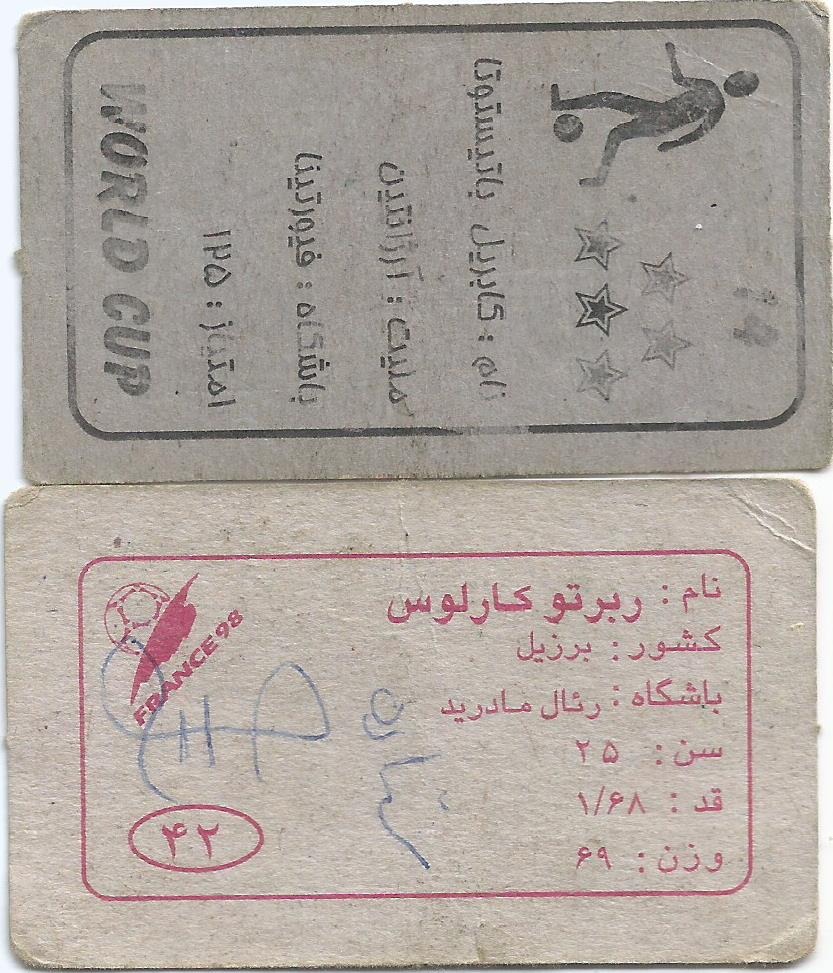 نام : گابریل باتیستوتا
ملیت : آرژانتین
باشگاه : فیورنتینا
امتیاز : ۱۲۵
WORLD CUP
نام : ربرتو کارلوس
کشور : برزیل
باشگاه : رئال مادرید
سن : ۲۵
قد : ۱/۶۸
وزن : ۶۹
FRANCE 98
۴۲